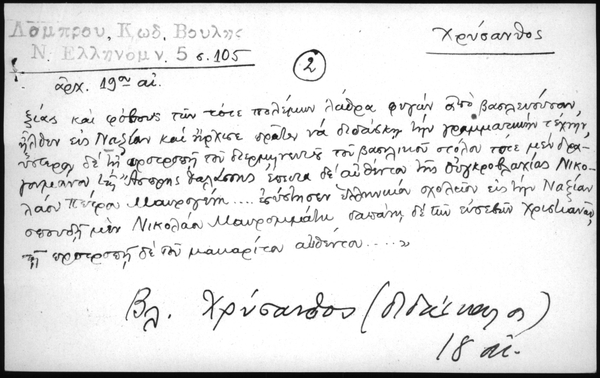 Λάμπρου, Κωδ. Βουλῆς
Ν. Ἑλληνομν. 5 σ. 105
Χρύσανθος
2
ἀρχ. 19ου αἰ.
ξίας καὶ φόβους τῶν τότε πολέμων λάθρα φυγὼν ἀπὸ βασιλεύουσαν,
ἦλθεν εἰς Ναξίαν καὶ ἤρχισε πρῶτον νὰ διδάσκῃ τὴν γραμματικὴν τέχνην,
ὕστερον δὲ τῇ προτροπῇ τοῦ διερμηνευτοῦ τοῦ βασιλικοῦ στόλου τότε μὲν δρα-
γομάνου τῆς Ἄσπρης θαλάσσης ἔπειτα δὲ αὐθέντου τῆς Οὐγκροβλαχίας Νικο-
λάου Πέτρου Μαυρογένη.... ἐσύστησεν ἑλληνικὸν σχολεῖον εἰς τὴν Ναξίαν
σπουδῇ μὲν Νικολάου Μαυρομμάτη δαπάνῃ δὲ τῶν εὐσεβῶν Χριστιανῶν,
τῇ προτροπῇ δὲ τοῦ μακαρίτου αὐθέντου....»
Βλ. Χρύσανθος (διδάσκαλος)
18 αἰ.